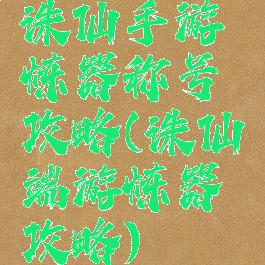 诛仙手游
炼器称号
攻略(诛仙
端游炼器
攻略)